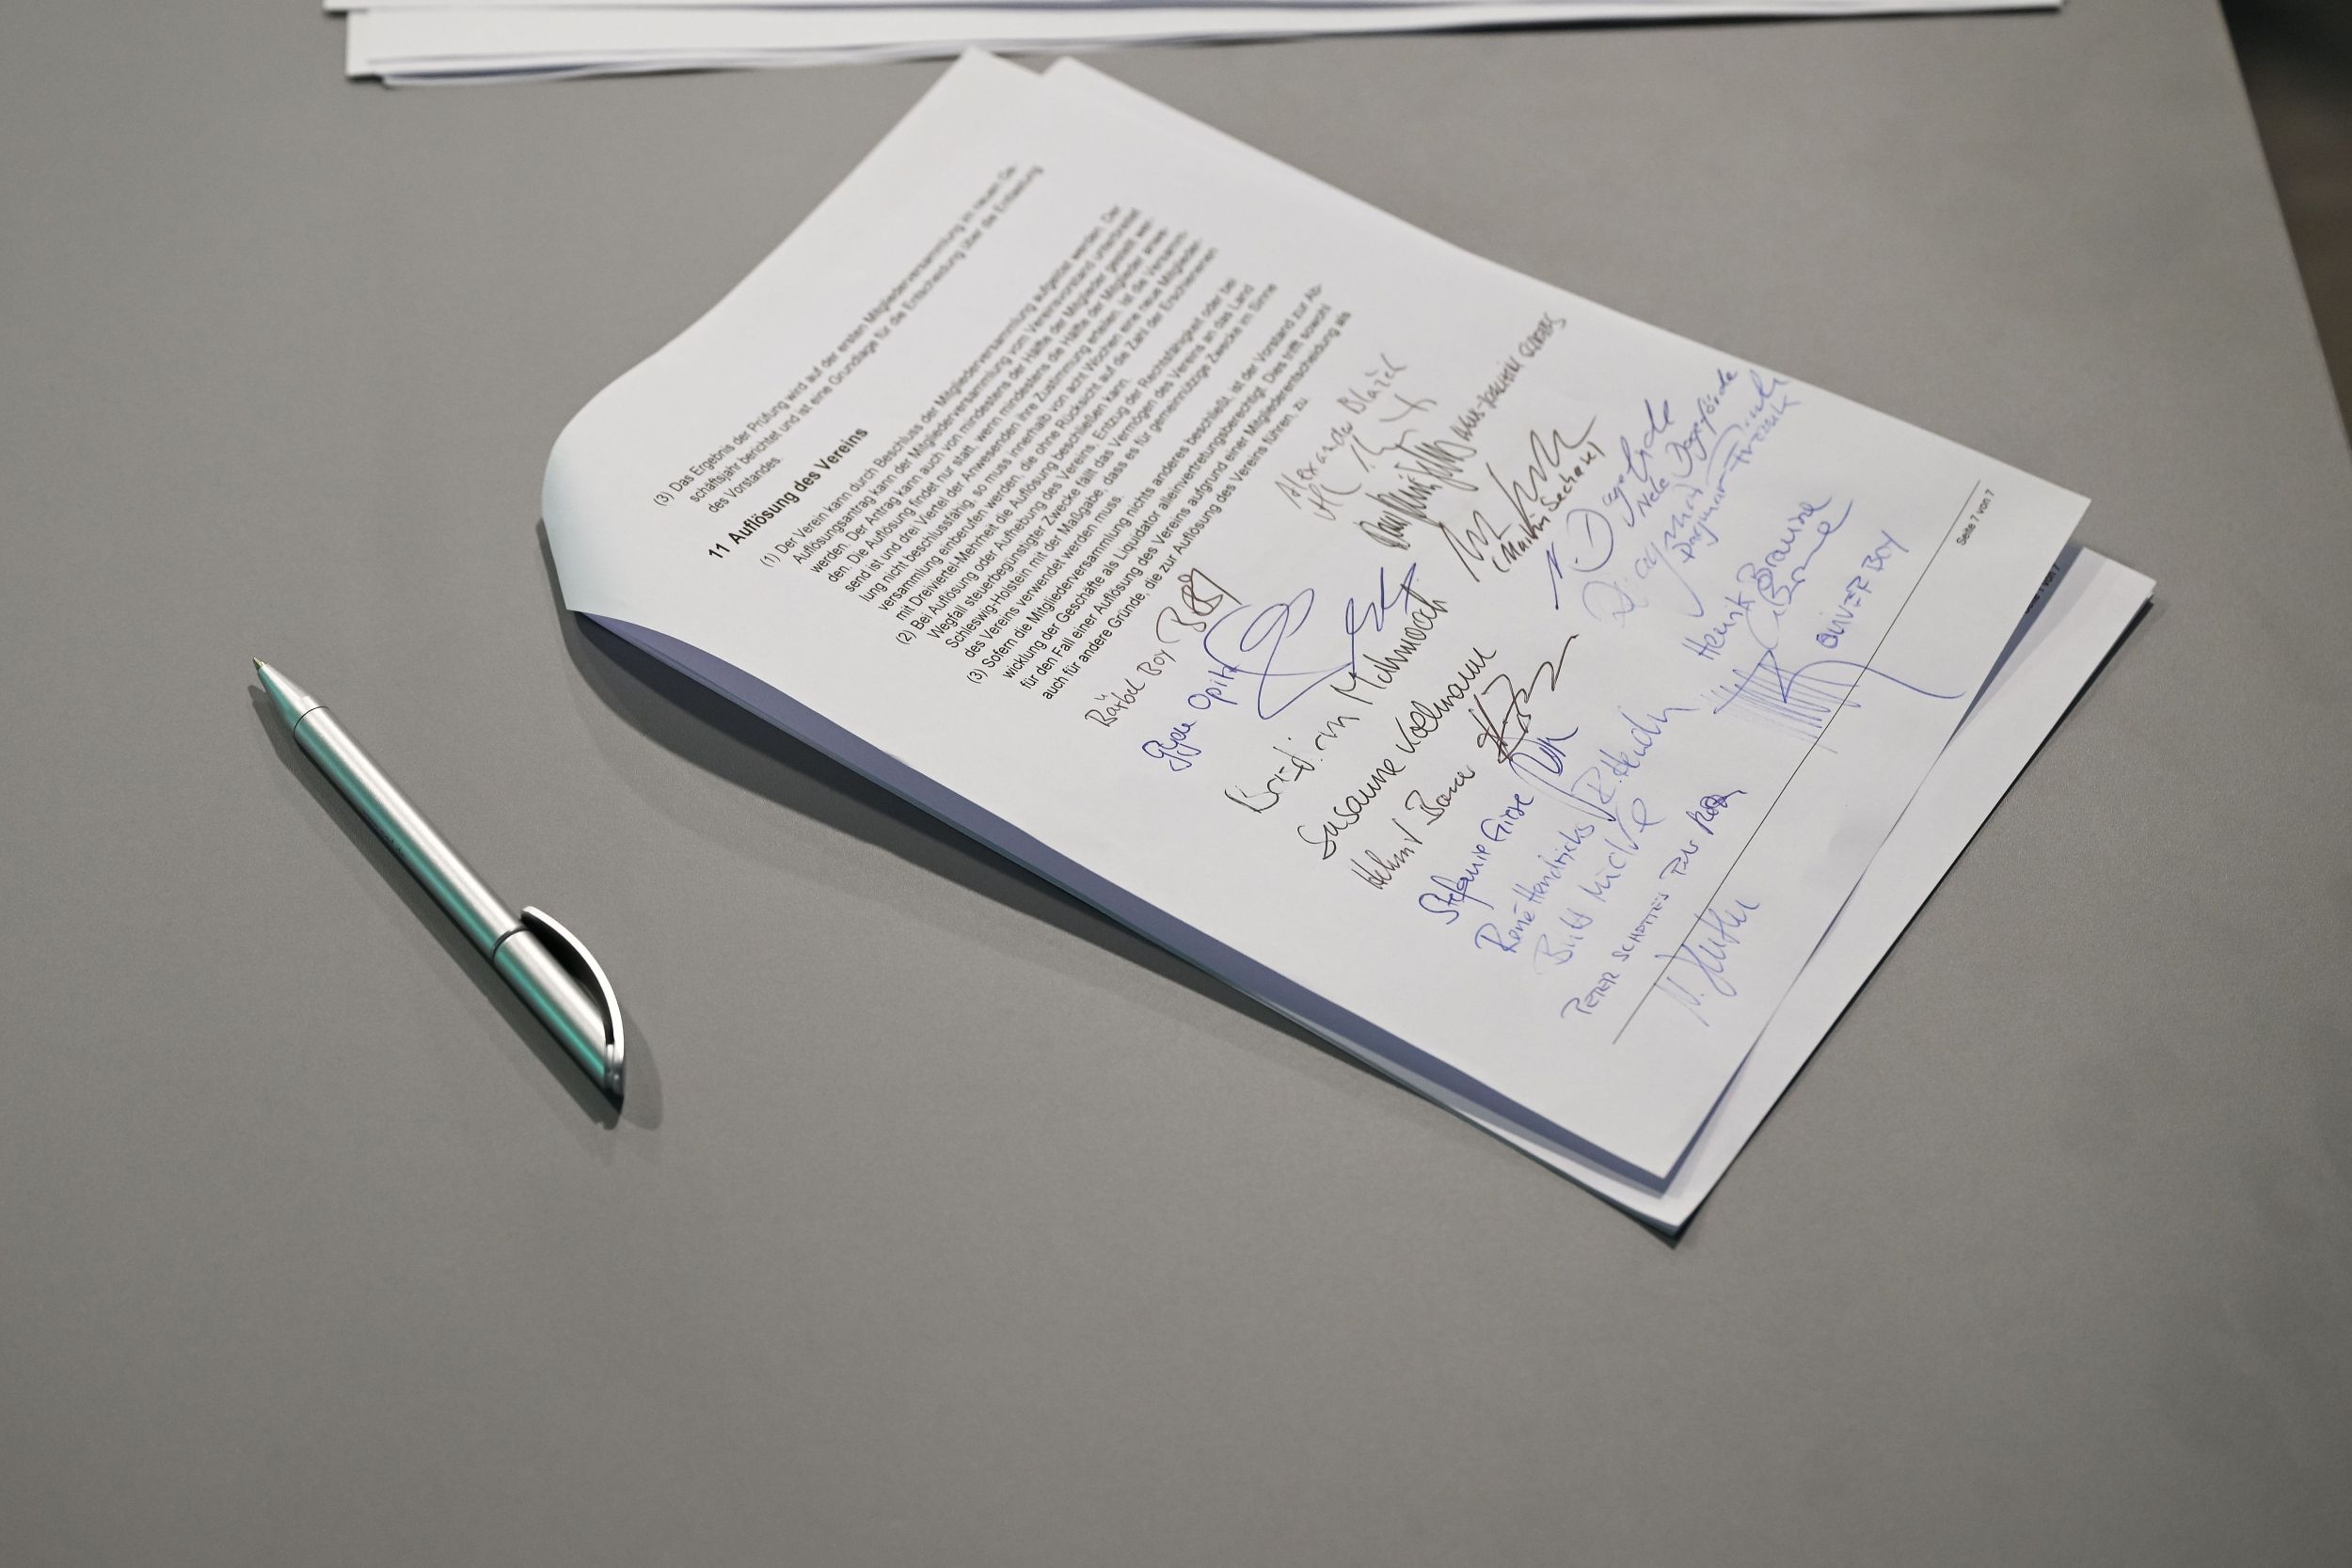 (3) Das Ergebnis der Prüfung wird auf der ersten Mitgliederversammlung im neuen Ge-
schäftsjahr berichtet und ist eine Grundlage für die Entscheidung über die Entlastung
des Vorstandes.
11 Auflösung des Vereins
(1) Der Verein kann durch Beschluss der Mitgliederversammlung aufgelöst werden. Der
Auflösungsantrag kann der Mitgliederversammlung vom Vereinsvorstand unterbreitet
werden. Der Antrag kann auch von mindestens der Hälfte der Mitglieder gestellt wer-
den. Die Auflösung findet nur statt, wenn mindestens die Hälfte der Mitglieder anwe-
send ist und drei Viertel der Anwesenden ihre Zustimmung erteilen, ist die Versamm-
lung nicht beschlussfähig, so muss innerhalb von acht Wochen eine neue Mitglieder-
versammlung einberufen werden, die ohne Rücksicht auf die Zahl der Erschienenen
mit Dreiviertel-Mehrheit die Auflösung beschließen kann.
(2) Bei Auflösung oder Aufhebung des Vereins, Entzug der Rechtsfähigkeit oder bei
Wegfall steuerbegünstigter Zwecke fällt das Vermögen des Vereins an das Land
Schleswig-Holstein mit der Maßgabe, dass es für gemeinnützige Zwecke im Sinne
des Vereins verwendet werden muss.
(3) Sofern die Mitgliederversammlung nichts anderes beschließt, ist der Vorstand zur Ab-
wicklung der Geschäfte als Liquidator alleinvertretungsberechtigt. Dies trifft sowohl
für den Fall einer Auflösung des Vereins aufgrund einer Mitgliederentscheidung als
auch für andere Gründe, die zur Auflösung des Vereins führen, zu.
Bärbel Boy
Opitz
Susanne Kollmann
Stefanie Giese
René Hendricks R. Hendr
PETER SCHOTTES
Alexander Blazek
HANS-JOACHIM
(Martin Sechart
Nele Degeförde
Dagmar
Henrik Braune
OLIVER BOY
Seite 7 von 7